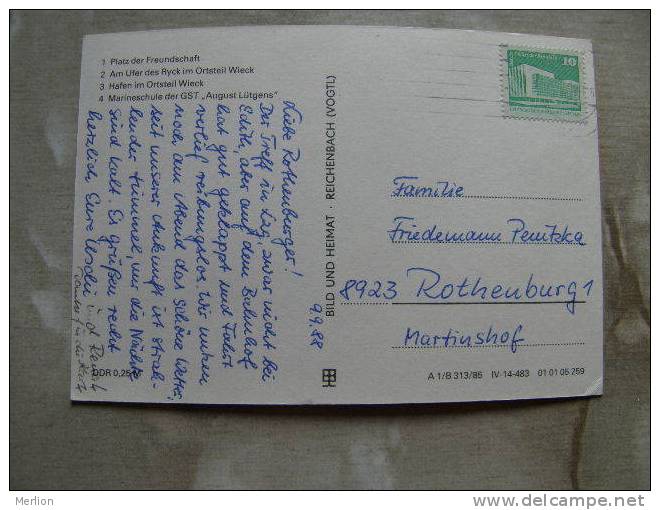 1 Platz der Freundschaft
2 Am Ufer des Ryck im Ortsteil Wieck
3 Hafen im Ortsteil Wieck
4 Marineschule der GST „August Lütgens"
9.9.88
Liebe Rothenburger!
Der Treff in Lzg, zwar nicht bei
Edith, aber auf dem Bahnhof
hat gut geklappt und Fahrt
verlief reibungslos. Wir nutzen
noch am Abend das schöne Wetter,
seit unserer Ankunft ist strah-
lender Himmel, nur die Nächte
sind kalt. Es grüßen recht
herzlich Eure und
DDR 0,25 M
BILD UND HEIMAT · REICHENBACH (VOGTL)
10
Familie
Friedemann Penitzka
8923 Rothenburg 1
Martinshof
A 1/B 313/85 IV-14-483 01 01 05 259
Merlion
www.delcampe.net